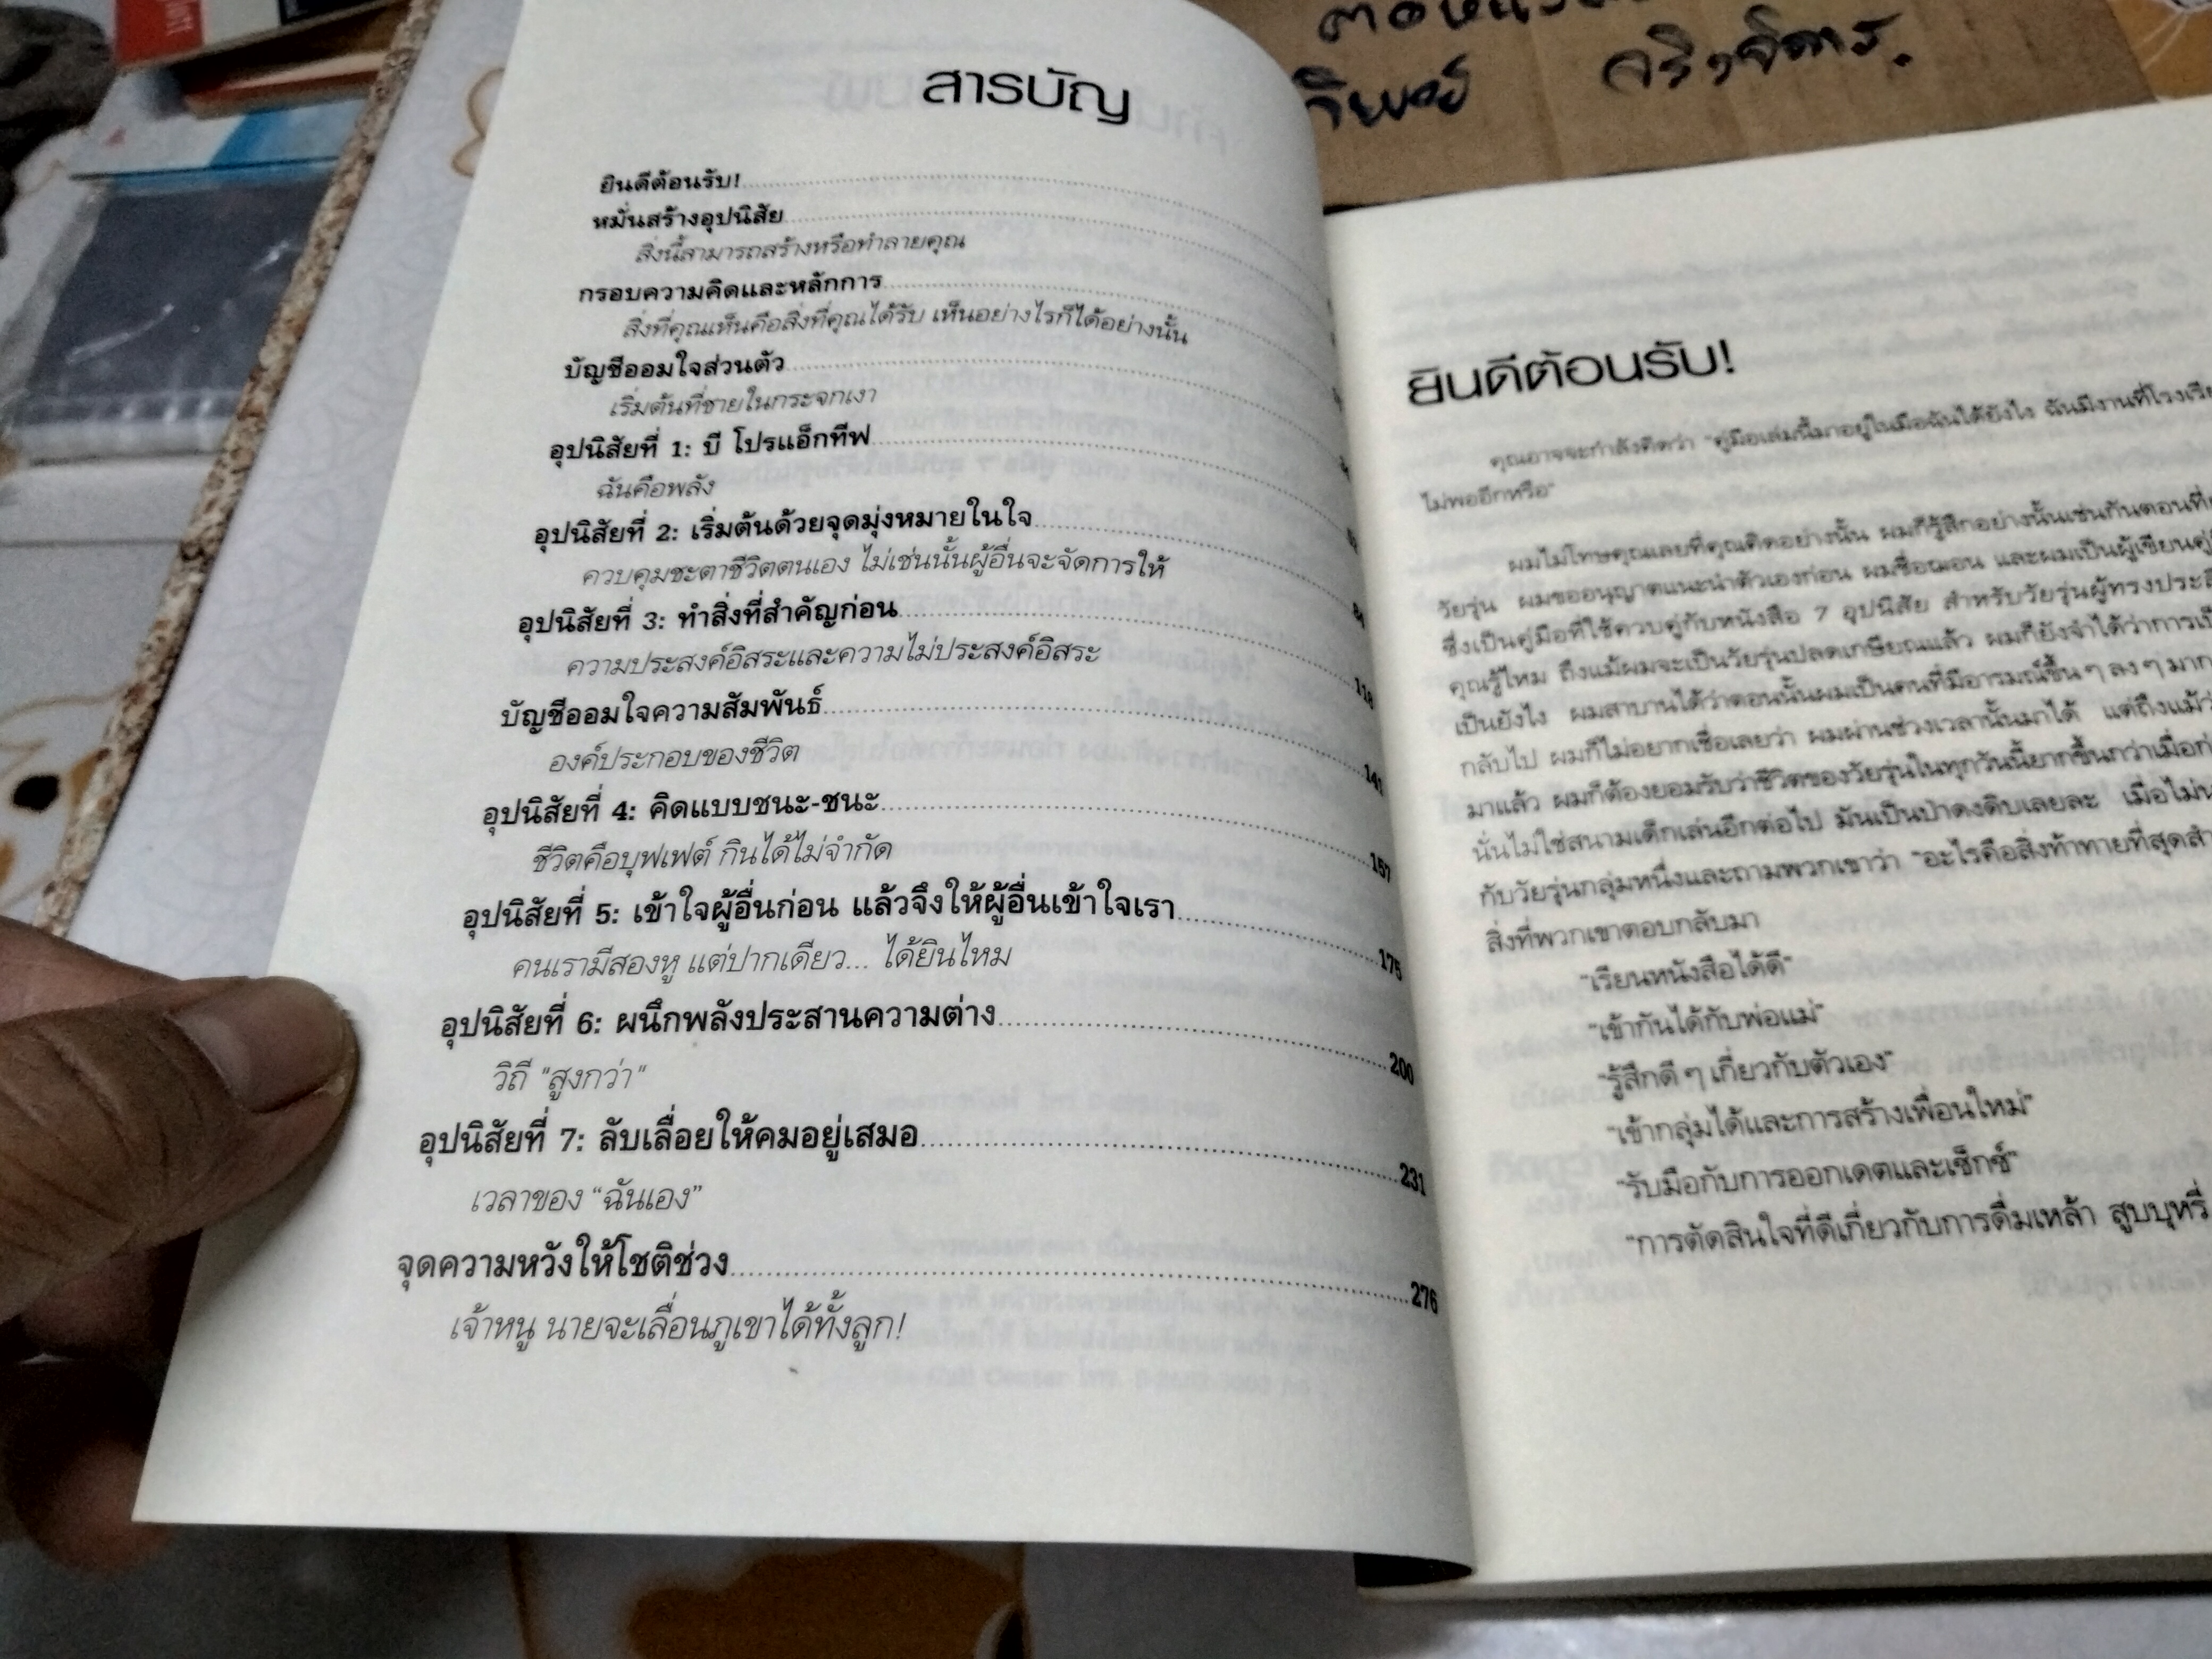 สารบัญ
ยินดีต้อนรับ!
หมั่นสร้างอุปนิสัย
สิ่งนี้สามารถสร้างหรือทำลายคุณ
กรอบความคิดและหลักการ
สิ่งที่คุณเห็นคือสิ่งที่คุณได้รับ เห็นอย่างไรก็ได้อย่างนั้น
บัญชีออมใจส่วนตัว
เริ่มต้นที่ชายในกระจกเงา
อุปนิสัยที่ 1: บี โปรแอ็กทีฟ
ฉันคือพลัง
อุปนิสัยที่ 2: เริ่มต้นด้วยจุดมุ่งหมายในใจ
ควบคุมชะตาชีวิตตนเอง ไม่เช่นนั้นผู้อื่นจะจัดการให้
อุปนิสัยที่ 3: ทำสิ่งที่สำคัญก่อน 118
ความประสงค์อิสระและความไม่ประสงค์อิสระ
บัญชีออมใจความสัมพันธ์ 141
องค์ประกอบของชีวิต
อุปนิสัยที่ 4: คิดแบบชนะ-ชนะ 157
ชีวิตคือบุฟเฟต์ กินได้ไม่จำกัด
อุปนิสัยที่ 5: เข้าใจผู้อื่นก่อน แล้วจึงให้ผู้อื่นเข้าใจเรา 175
คนเรามีสองหู แต่ปากเดียว... ได้ยินไหม
อุปนิสัยที่ 6: ผนึกพลังประสานความต่าง 200
วิถี "สูงกว่า"
อุปนิสัยที่ 7: ลับเลื่อยให้คมอยู่เสมอ 231
เวลาของ “ฉันเอง”
จุดความหวังให้โชติช่วง 276
เจ้าหนู นายจะเลื่อนภูเขาได้ทั้งลูก!
ยินดีต้อนรับ!
คุณอาจจะกำลังคิดว่า "คู่มือเล่มนี้มาอยู่ในมือฉันได้ยังไง ฉันมีงานที่โรงเรีย
ไม่พออีกหรือ"
ผมไม่โทษคุณเลยที่คุณคิดอย่างนั้น ผมก็รู้สึกอย่างนั้นเช่นกันตอนที่
วัยรุ่น ผมขออนุญาตแนะนำตัวเองก่อน ผมชื่อฌอน และผมเป็นผู้เขียน
ซึ่งเป็นคู่มือที่ใช้ควบคู่กับหนังสือ 7 อุปนิสัย สำหรับวัยรุ่นผู้ทรงประสิ
คุณรู้ไหม ถึงแม้ผมจะเป็นวัยรุ่นปลดเกษียณแล้ว ผมก็ยังจำได้ว่าการ
เป็นยังไง ผมสาบานได้ว่าตอนนั้นผมเป็นคนที่มีอารมณ์ขึ้นๆ ลงๆ มาก
กลับไป ผมก็ไม่อยากเชื่อเลยว่า ผมผ่านช่วงเวลานั้นมาได้ แต่ถึงแม้
มาแล้ว ผมก็ต้องยอมรับว่าชีวิตของวัยรุ่นในทุกวันนี้ยากขึ้นกว่าเมื่อก่
นั่นไม่ใช่สนามเด็กเล่นอีกต่อไป มันเป็นป่าดงดิบเลยละ เมื่อไม่น
กับวัยรุ่นกลุ่มหนึ่งและถามพวกเขาว่า "อะไรคือสิ่งท้าทายที่สุดสำ
สิ่งที่พวกเขาตอบกลับมา
"เรียนหนังสือได้ดี"
"เข้ากันได้กับพ่อแม่"
"รู้สึกดีๆ เกี่ยวกับตัวเอง"
"เข้ากลุ่มได้และการสร้างเพื่อนใหม่"
"รับมือกับการออกเดตและเซ็กซ์"
"การตัดสินใจที่ดีเกี่ยวกับการดื่มเหล้า สูบบุหรี่